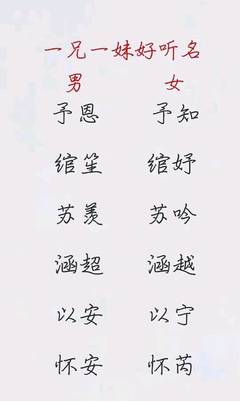 一兄一妹好听名
男 女
予恩 予知
绾笙 绾妤
苏羡 苏吟
涵超 涵越
以安 以宁
怀安 怀芮